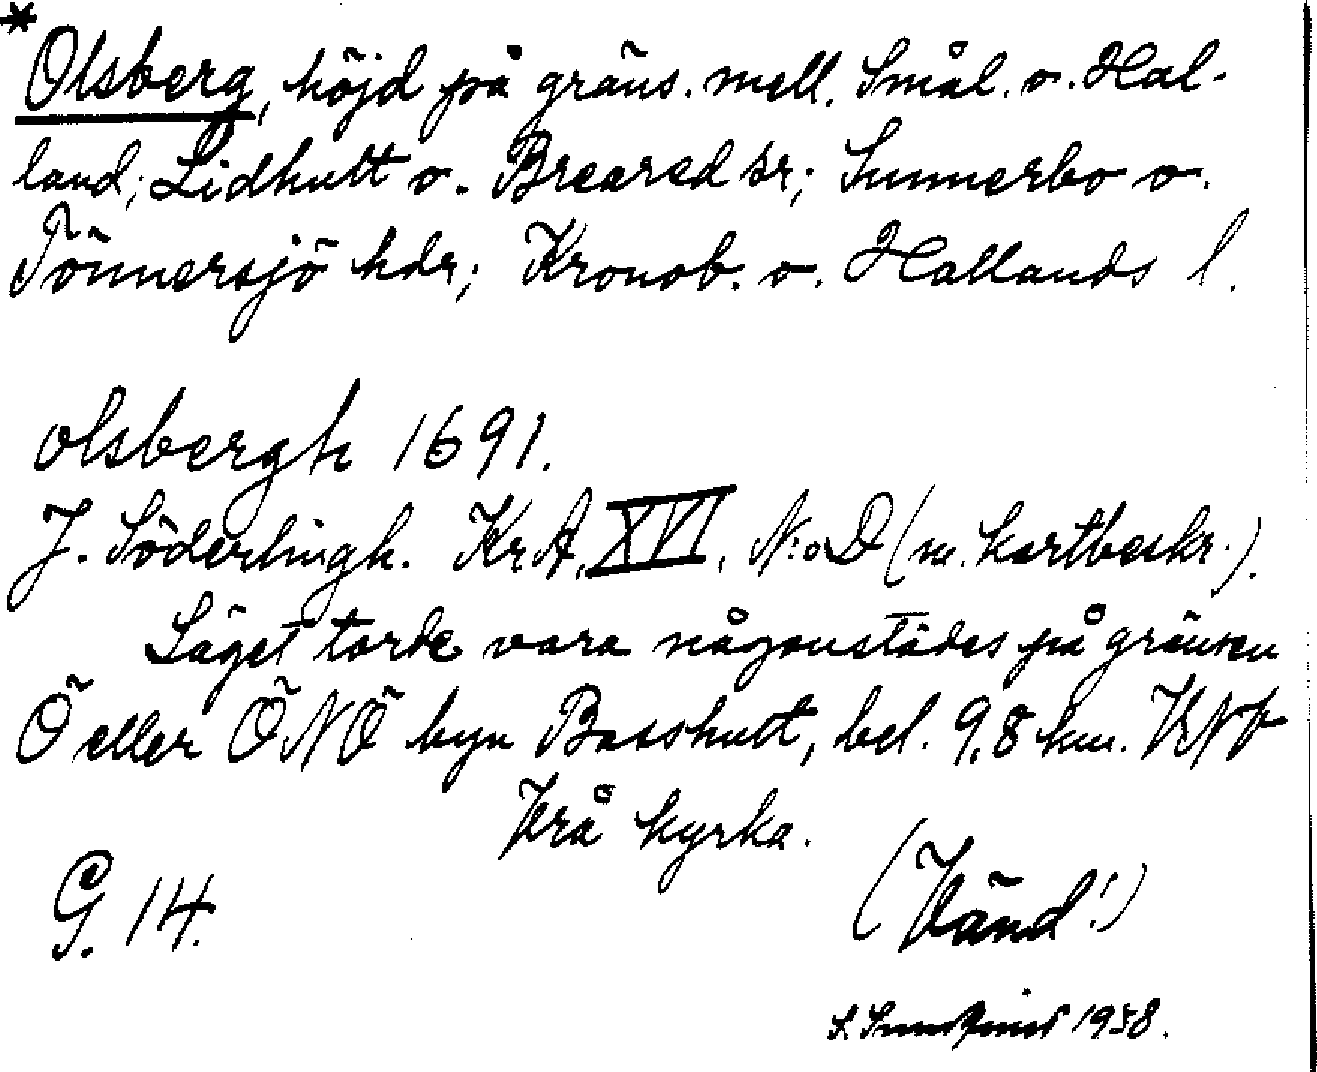 *Olsberg, höjd på gräns. mell. Smål. o. Hal-
land; Lidhult o. Breared snr; Sunnerbo o.
Tönnersjö hdr; Kronob. o. Hallands l.
olsbergh 1691.
J. Söderlingh. KrA, XVI, N:o D (m. kartbeskr.).
Läget torde vara någonstädes på gränsen
Ö eller ÖNÖ byn Bosshult, bel. 9,8 km. VNV
Vrå kyrka.
G. 14.
(Vänd!)
S. 1958.